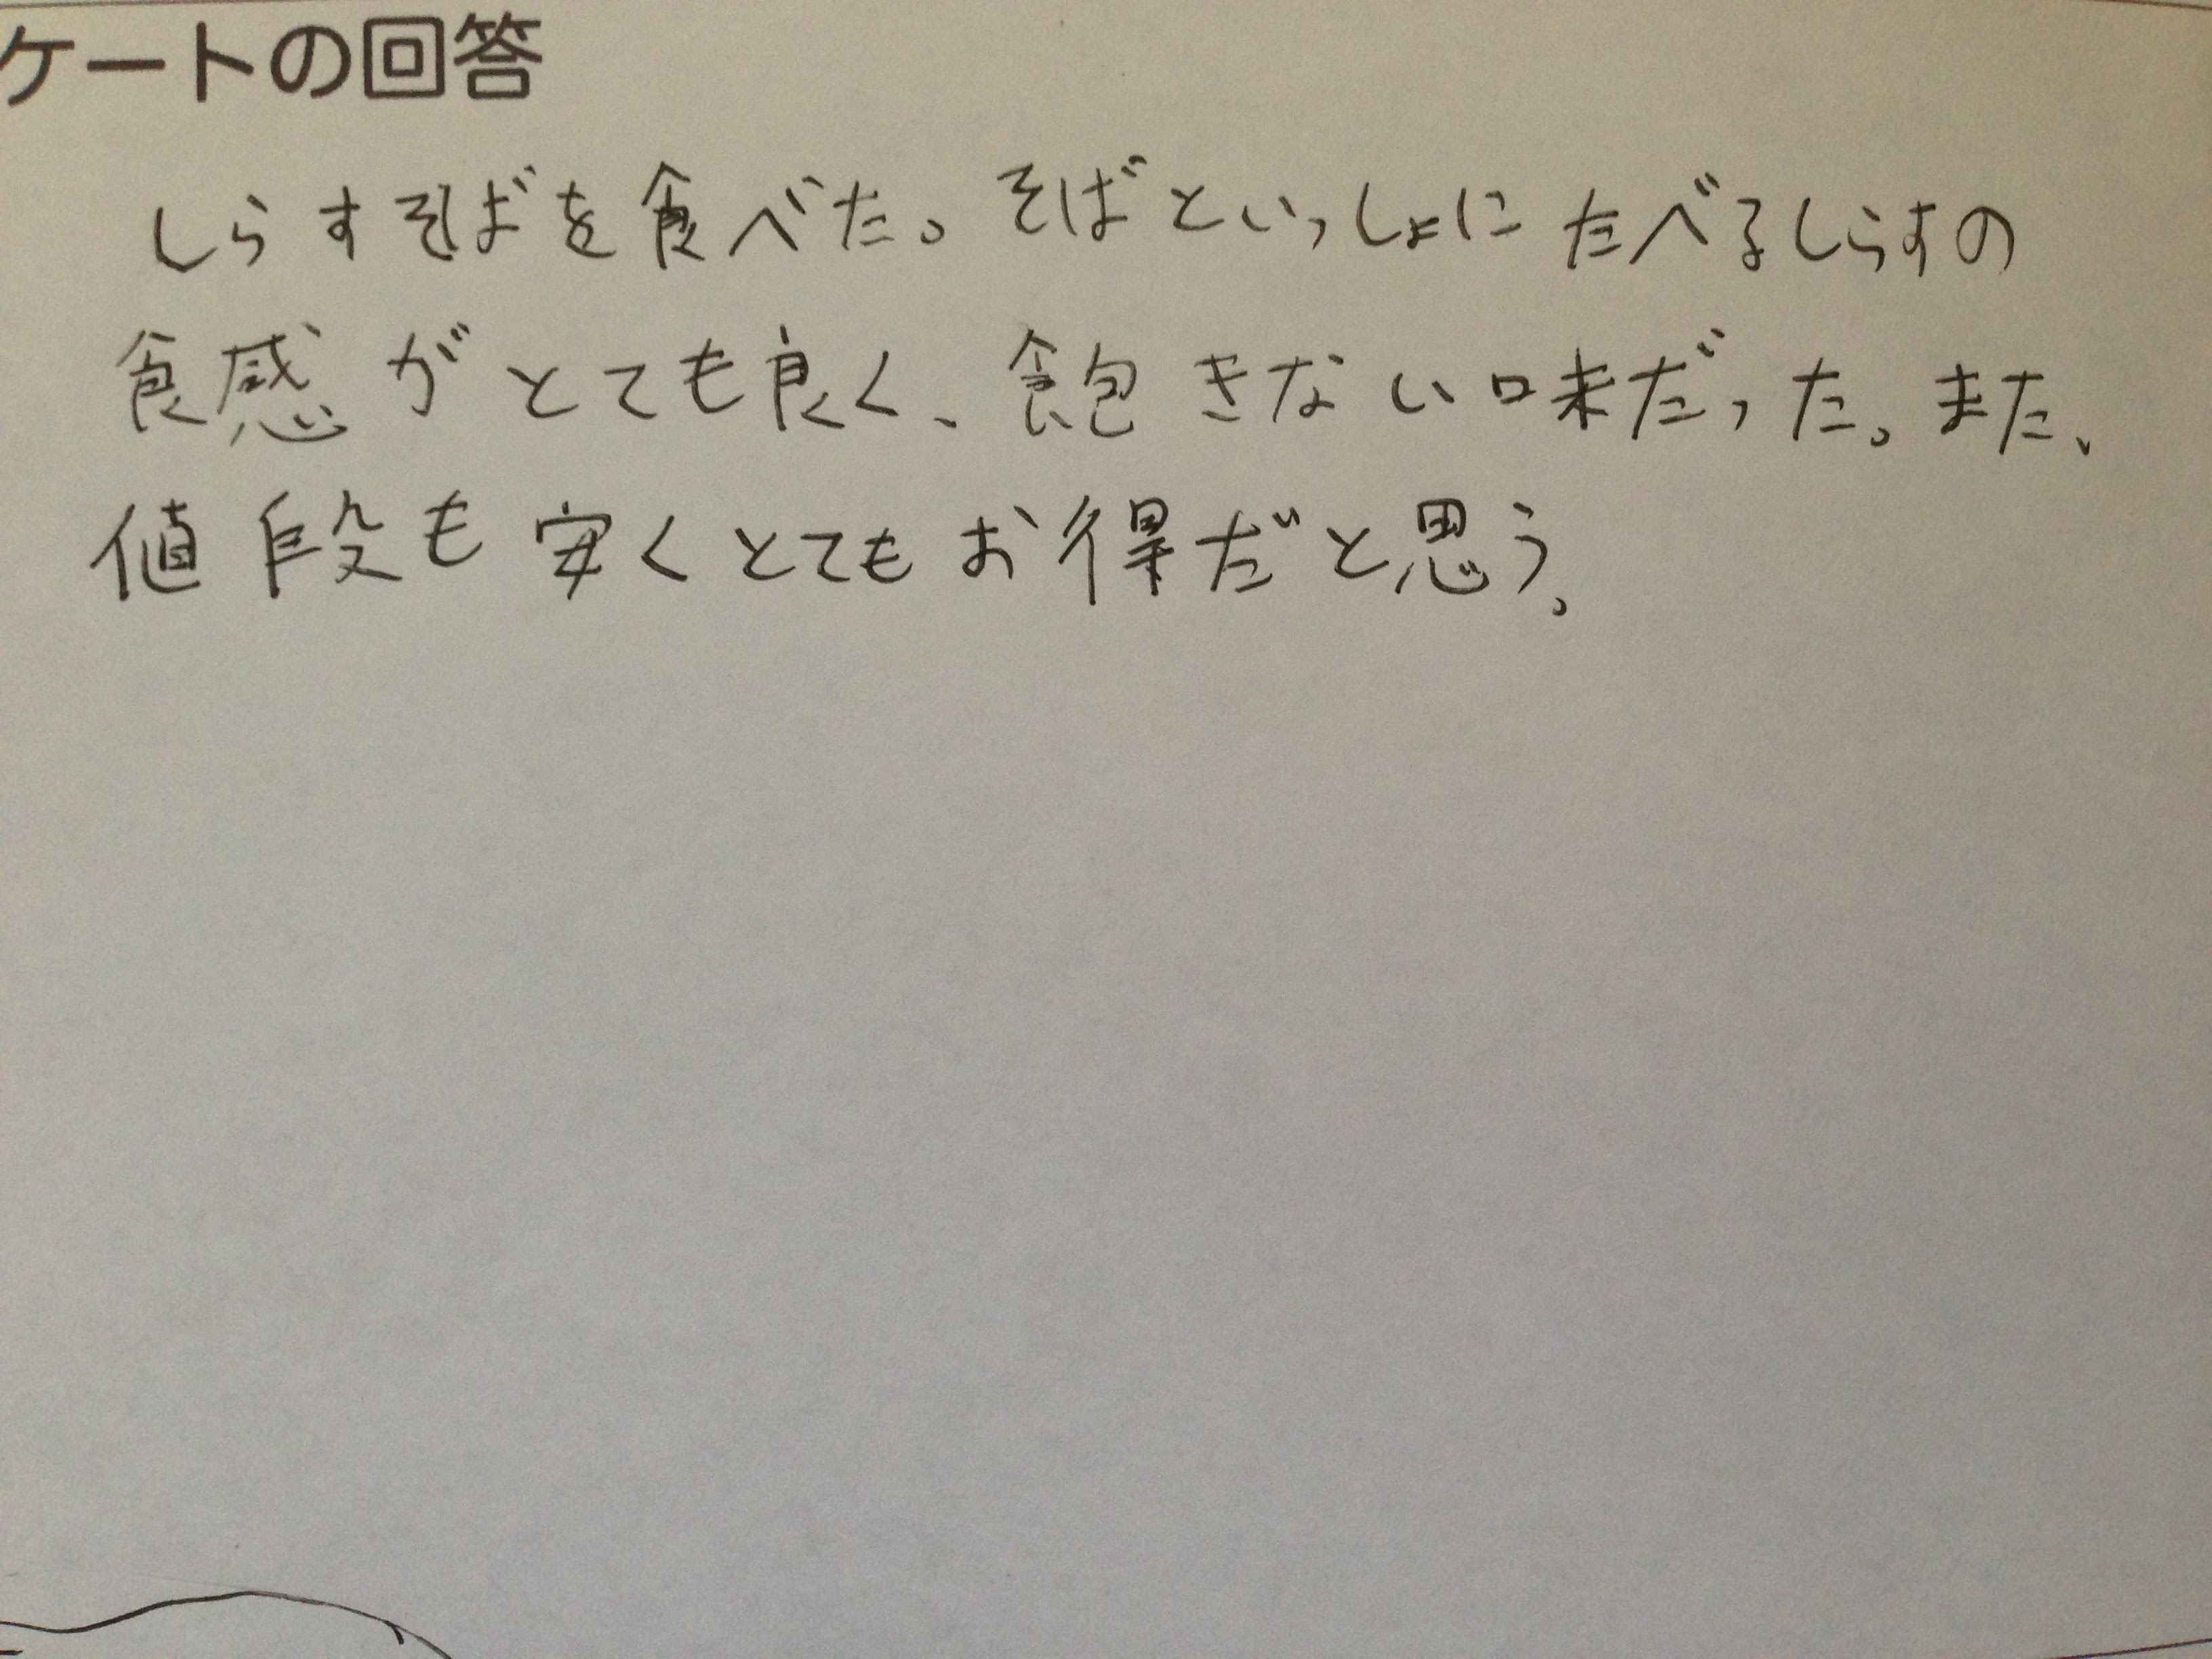 ケートの回答
しらすそばを食べた。そばといっしょにたべるしらすの
食感がとても良く、飽きない味だった。また、
値段も安くとてもお得だと思う。